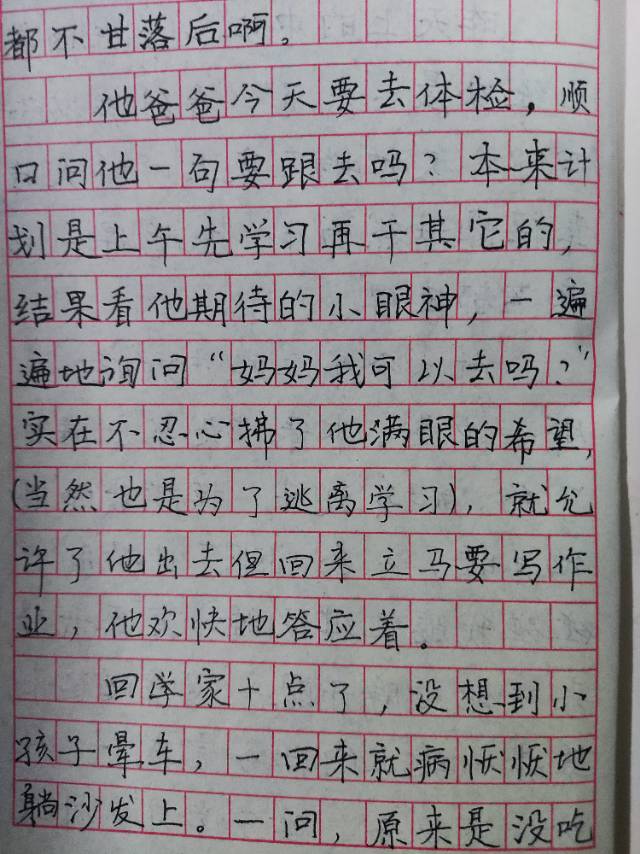 都不甘落后啊。
他爸爸今天要去体检，顺
口问他一句要跟去吗？本来计
划是上午先学习再干其它的，
结果看他期待的小眼神，一遍
遍地询问“妈妈我可以去吗？”
实在不忍心拂了他满眼的希望，
(当然也是为了逃离学习)，就允
许了他出去但回来立马要写作
业，他欢快地答应着。
回学家十点了，没想到小
孩子晕车，一回来就病恹恹地
躺沙发上。一问，原来是没吃